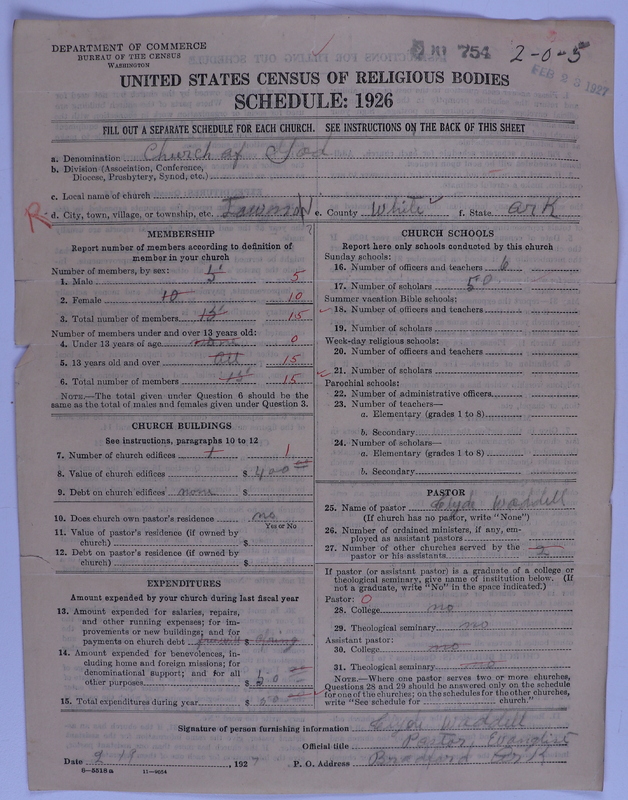 DEPARTMENT OF COMMERCE
BUREAU OF THE CENSUS
WASHINGTON
754
2-0-5
FEB 23 1927
UNITED STATES CENSUS OF RELIGIOUS BODIES
SCHEDULE: 1926
FILL OUT A SEPARATE SCHEDULE FOR EACH CHURCH. SEE INSTRUCTIONS ON THE BACK OF THIS SHEET
a. Denomination Church of God
b. Division (Association, Conference,
Diocese, Presbytery, Synod, etc.)
c. Local name of church
R d. City, town, village, or township, etc. e. County White f. State Ark
MEMBERSHIP
Report number of members according to definition of
member in your church
Number of members, by sex:
1. Male 5 5
2. Female 10 10
3. Total number of members 15 15
Number of members under and over 13 years old:
4. Under 13 years of age none 0
5. 13 years old and over All 15
6. Total number of members 15 15
NOTE.—The total given under Question 6 should be
same as the total of males and females given under Question 3.
CHURCH BUILDINGS
See instructions, paragraphs 10 to 12
7. Number of church edifices 1 1
8. Value of church edifices $ 400
9. Debt on church edifices none $
10. Does church own pastor's residence no
Yes or No
11. Value of pastor's residence (if owned by
church) $
12. Debt on pastor's residence (if owned by
church) $
EXPENDITURES
Amount expended by your church during last fiscal year
13. Amount expended for salaries, repairs,
and other running expenses; for im-
provements or new buildings; and for
payments on church debt $
14. Amount expended for benevolences, in-
cluding home and foreign missions; for
denominational support; and for all
other purposes $ 50
15. Total expenditures during year $ 50
CHURCH SCHOOLS
Report here only schools conducted by this church
Sunday schools:
16. Number of officers and teachers 6
17. Number of scholars 50
Summer vacation Bible schools:
18. Number of officers and teachers
19. Number of scholars
Week-day religious schools:
20. Number of officers and teachers
21. Number of scholars
Parochial schools:
22. Number of administrative officers
23. Number of teachers—
a. Elementary (grades 1 to 8)
b. Secondary
24. Number of scholars—
a. Elementary (grades 1 to 8)
b. Secondary
PASTOR
25. Name of pastor Clyde Waddell
(If church has no pastor, write "None")
26. Number of ordained ministers, if any, em-
ployed as assistant pastors
27. Number of other churches served by the 2
pastor or his assistants
If pastor (or assistant pastor) is a graduate of a college or
theological seminary, give name of institution below. (If
not a graduate, write "No" in the space indicated.)
Pastor: 0
28. College no
29. Theological seminary no
Assistant pastor:
30. College no
31. Theological seminary no
NOTE.—Where one pastor serves two or more churches,
Questions 28 and 29 should be answered only on the schedule
for one of the churches; on the schedules for the other churches,
write "See schedule for church."
Signature of person furnishing information Clyde Waddell
Official title Pastor, Evanglist
Date 2 19, 1927 P. O. Address Bradford Ark
8—5518a 11—9054